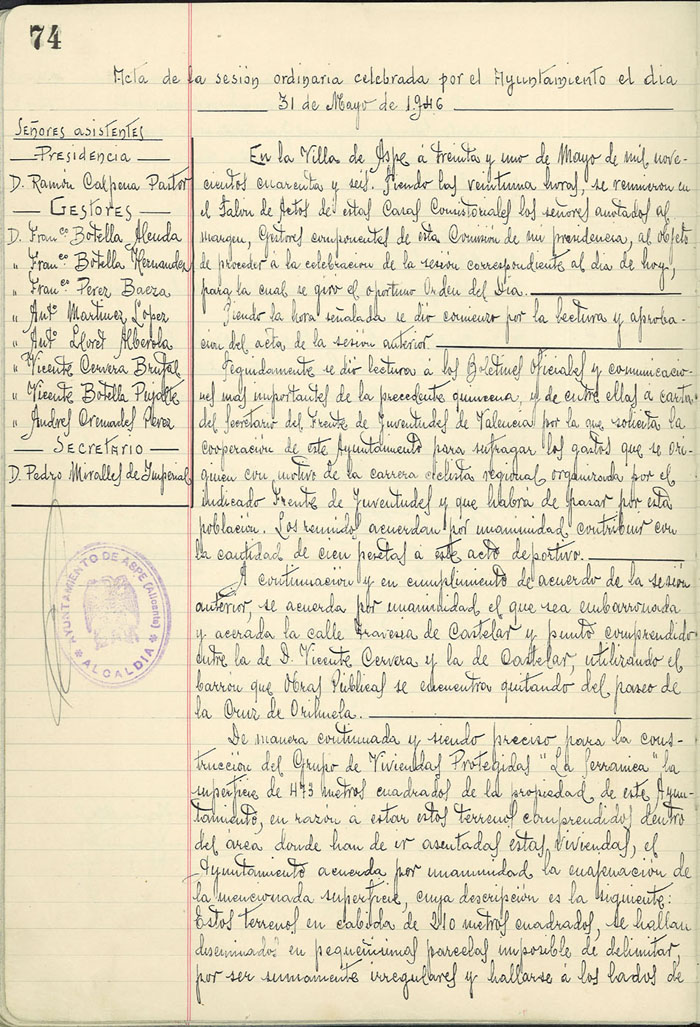 74
Acta de la sesión ordinaria celebrada por el Ayuntamiento el dia
31 de Mayo de 1946
Señores asistentes
Presidencia
D. Ramón Calpena Pastor
Gestores
D. Franco. Botella Alenda
" Franco. Botella Hernandez
" Franco. Perez Baeza
" Anto. Martinez Lopez
" Anto. Lloret Alberola
" Vicente Cervera Brufal
" Vicente Botella Pujalte
" Andres Cremades Perez
Secretario
D. Pedro Miralles de Imperial
AYUNTAMIENTO DE ASPE (Alicante)
* ALCALDIA *
En la Villa de Aspe á treinta y uno de Mayo de mil nove-
cientos cuarenta y seis. Siendo las veintiuna horas, se reunieron en
el Salon de Actos de estas Casas Comistoriales los señores anotados al
margen, Gestores componentes de esta Comisión de mi presidencia, al objeto
de proceder á la celebracion de la sesión correspondiente al dia de hoy,
para la cual se giro el oportuno Orden del Dia.
Siendo la hora señalada se dio comienzo por la lectura y aproba-
cion del acta de la sesión anterior
Seguidamente se dio lectura á los Boletines Oficiales y comunicacio-
nes mas importantes de la precedente quincena, y de entre ellas a carta
del Secretario del Frente de Juventudes de Valencia por la que solicita la
cooperación de este Ayuntamiento para sufragar los gastos que se ori-
ginen con motivo de la carrera ciclista regional organizada por el
indicado Frente de Juventudes y que habra de pasar por esta
población. Los reunidos acuerdan por unanimidad contribuir con
la cantidad de cien pesetas á este acto deportivo.
A continuación y en cumplimiento de acuerdo de la sesión
anterior, se acuerda por unanimidad el que sea embarronada
y acerada la calle Travesia de Castelar y punto comprendido
entre la de D. Vicente Cervera y la de Castelar, utilizando el
barrón que Obras Publicas se encuentra quitando del paseo de
la Cruz de Orihuela.
De manera continuada y siendo preciso para la cons-
trucción del Grupo de Viviendas Protegidas "La Serranica" la
superficie de 473 metros cuadrados de la propiedad de este Ayun-
tamiento, en razón a estar estos terrenos comprendidos dentro
del área donde han de ir asentadas estas viviendas, el
Ayuntamiento acuerda por unanimidad la enajenación de
la mencionada superficie, cuya descripción es la siguiente:
Estos terrenos en cabida de 210 metros cuadrados, se hallan
diseminados en pequeñisimas parcelas imposible de delimitar,
por ser sumamente irregulares y hallarse á los lados de